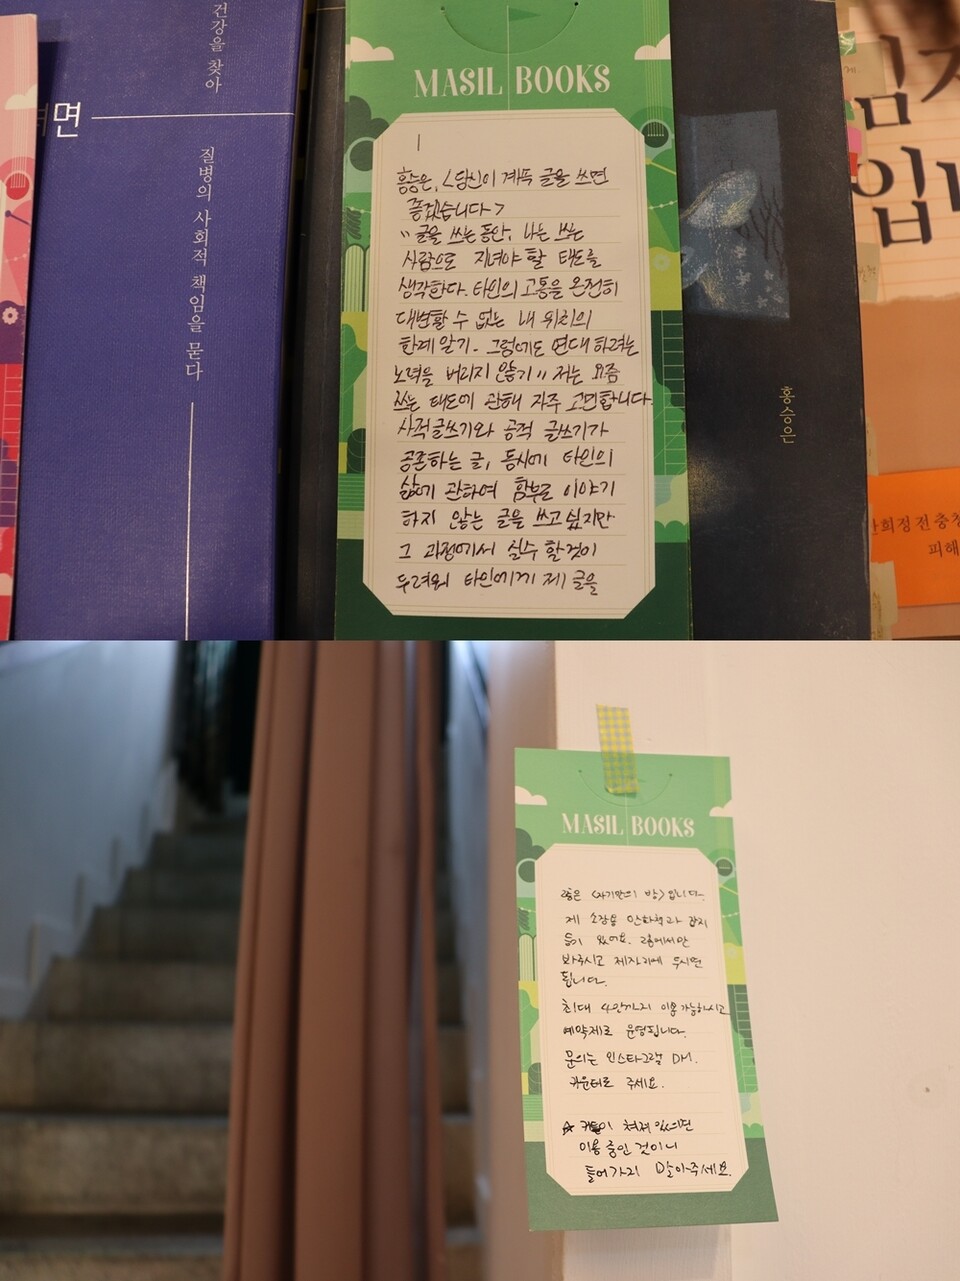 건강을 찾아
면
질병의 사회적 책임을 묻다
MASIL BOOKS
홍승은, <당신이 계속 글을 쓰면
좋겠습니다>
"글을 쓰는 동안, 나는 쓰는
사람으로 지녀야 할 태도를
생각한다. 타인의 고통을 온전히
대변할 수 없는 내 위치의
한계 알기. 그럼에도 연대하려는
노력을 버리지 않기" 저는 요즘
쓰는 태도에 관해 자주 고민합니다.
사적글쓰기와 공적 글쓰기가
공존하는 글, 동시에 타인의
삶에 관하여 함부로 이야기
하지 않는 글을 쓰고싶지만
그 과정에서 실수 할것이
두려워 타인에게 제 글을
홍승은
피해
MASIL BOOKS
2층은 <자기만의 방>입니다.
제 소장용 만화책과 잡지
들이 있어요. 2층에서만
봐주시고 제자리에 두시면
됩니다.
최대 4인까지 이용가능하시고
예약제로 운영됩니다.
문의는 인스타그램 DM.
카운터로 주세요.
☆ 커튼이 쳐져 있으면
이용 중인 것이니
들어가지 말아주세요.